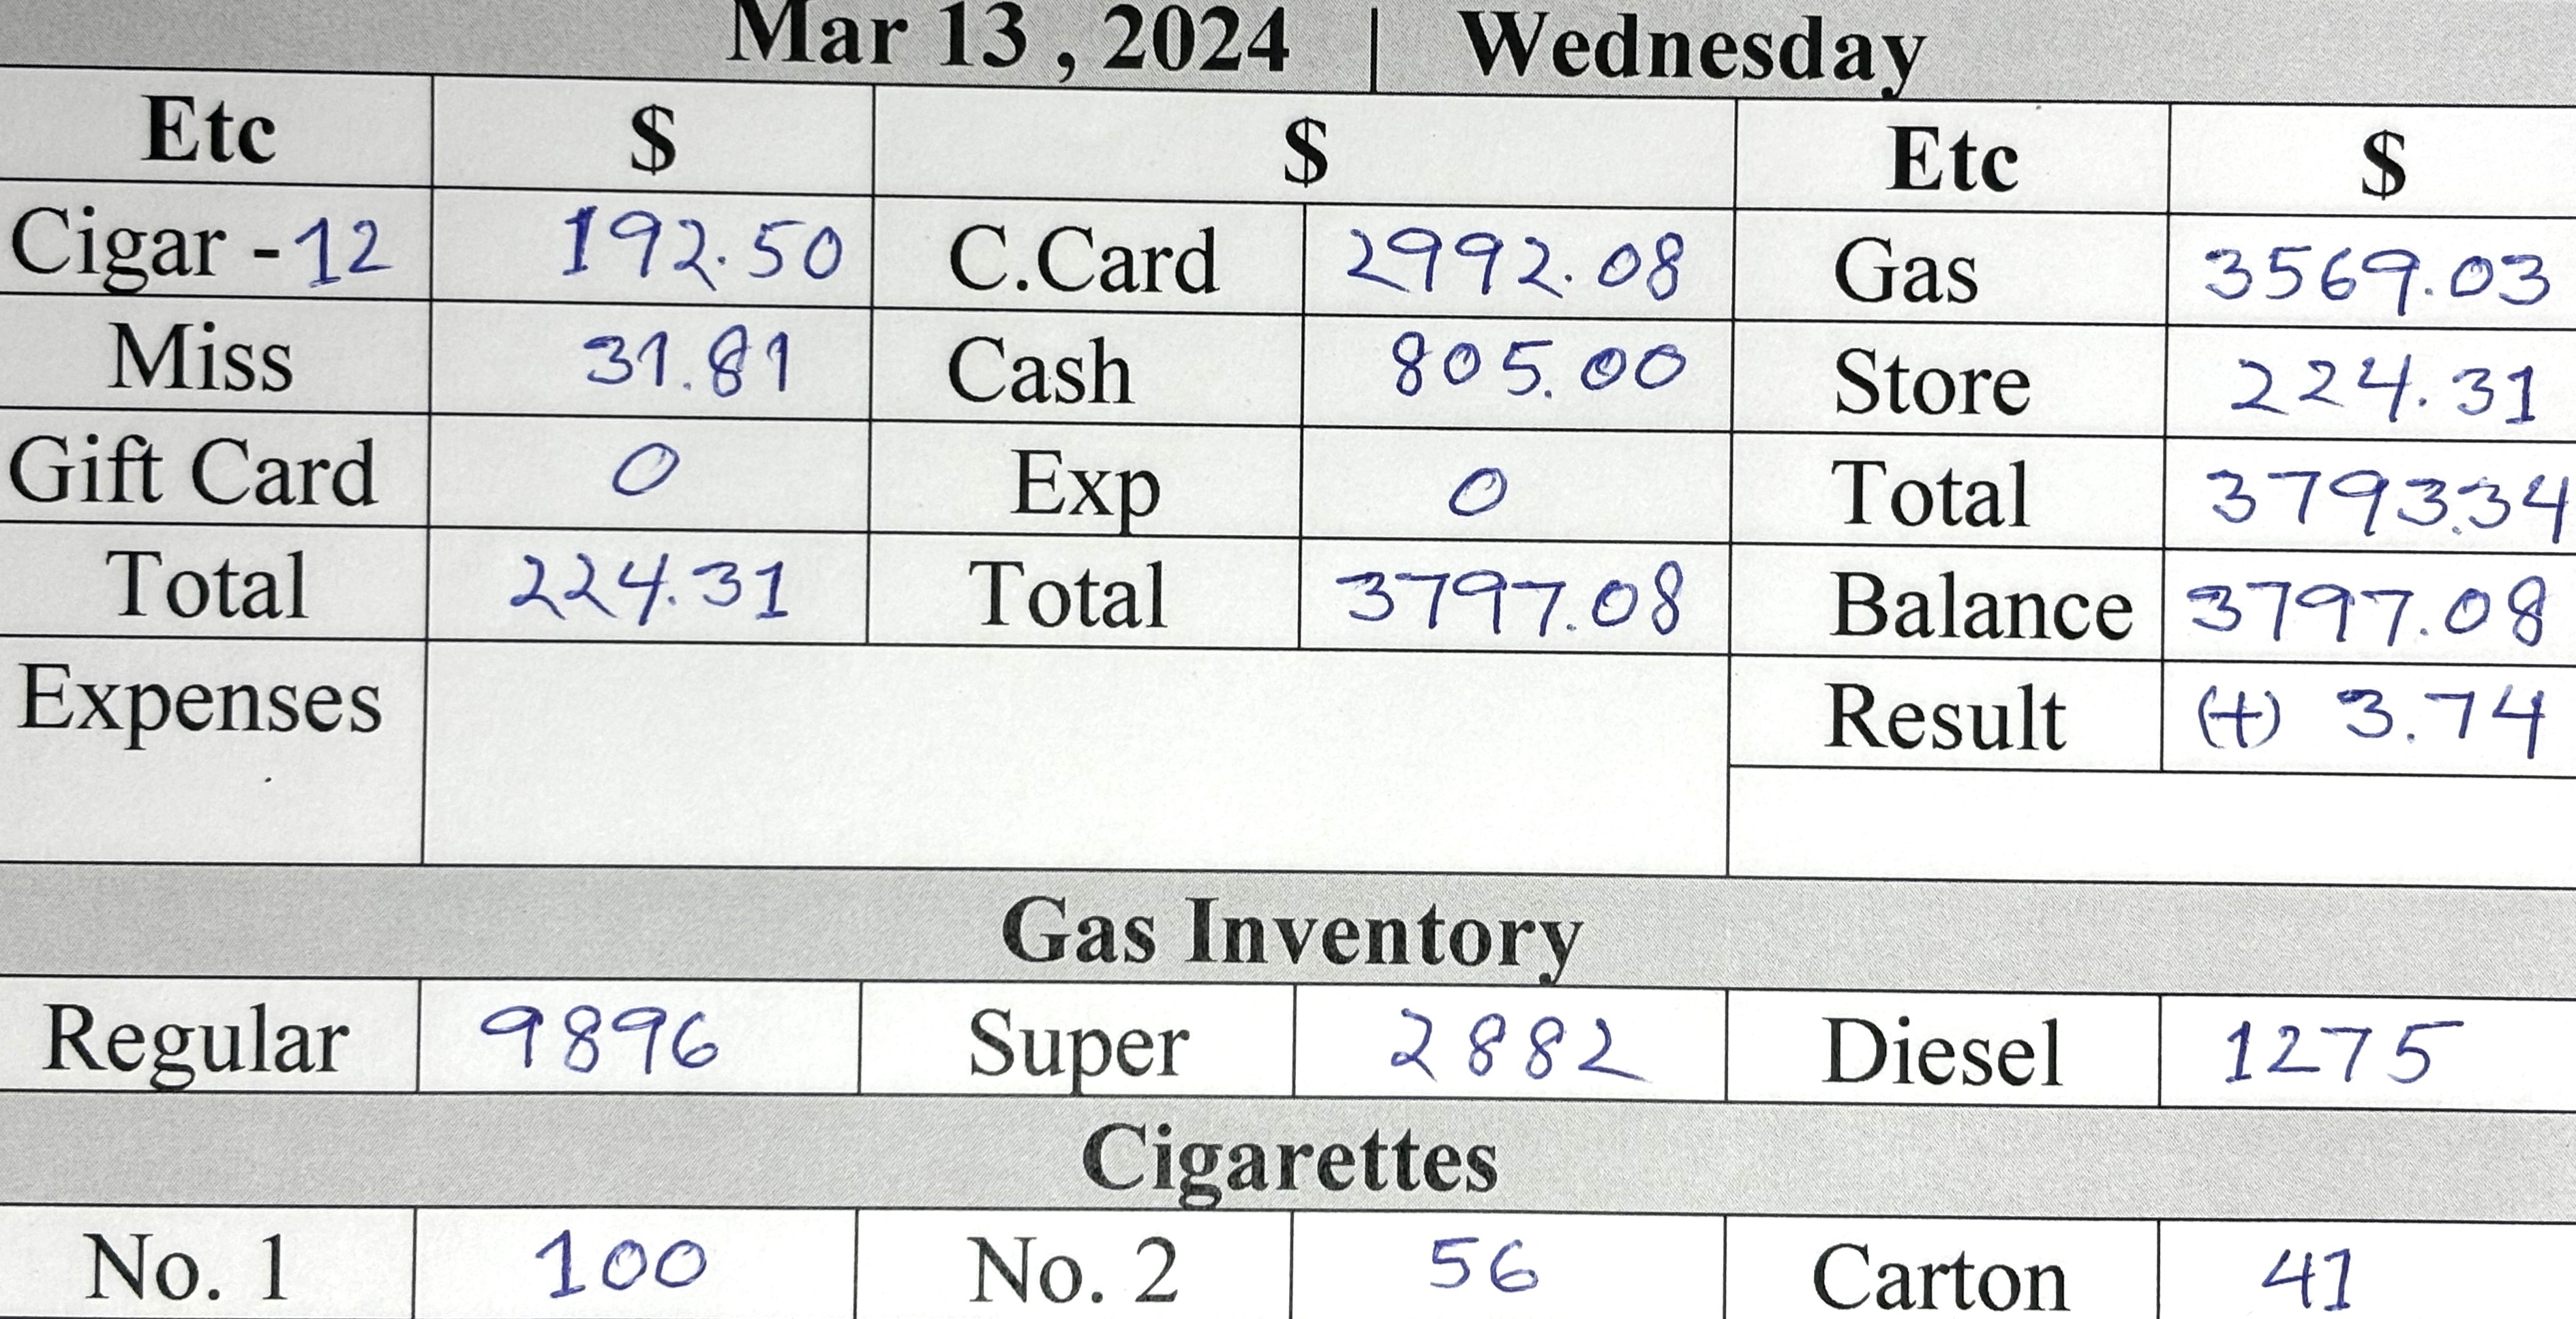 Mar 13 , 2024 | Wednesday
Etc $ $ Etc $
Cigar - 12 192.50 C.Card 2992.08 Gas 3569.03
Miss 31.81 Cash 805.00 Store 224.31
Gift Card 0 Exp 0 Total 3793.34
Total 224.31 Total 3797.08 Balance 3797.08
Expenses Result (+) 3.74
Gas Inventory
Regular 9896 Super 2882 Diesel 1275
Cigarettes
No. 1 100 No. 2 56 Carton 41